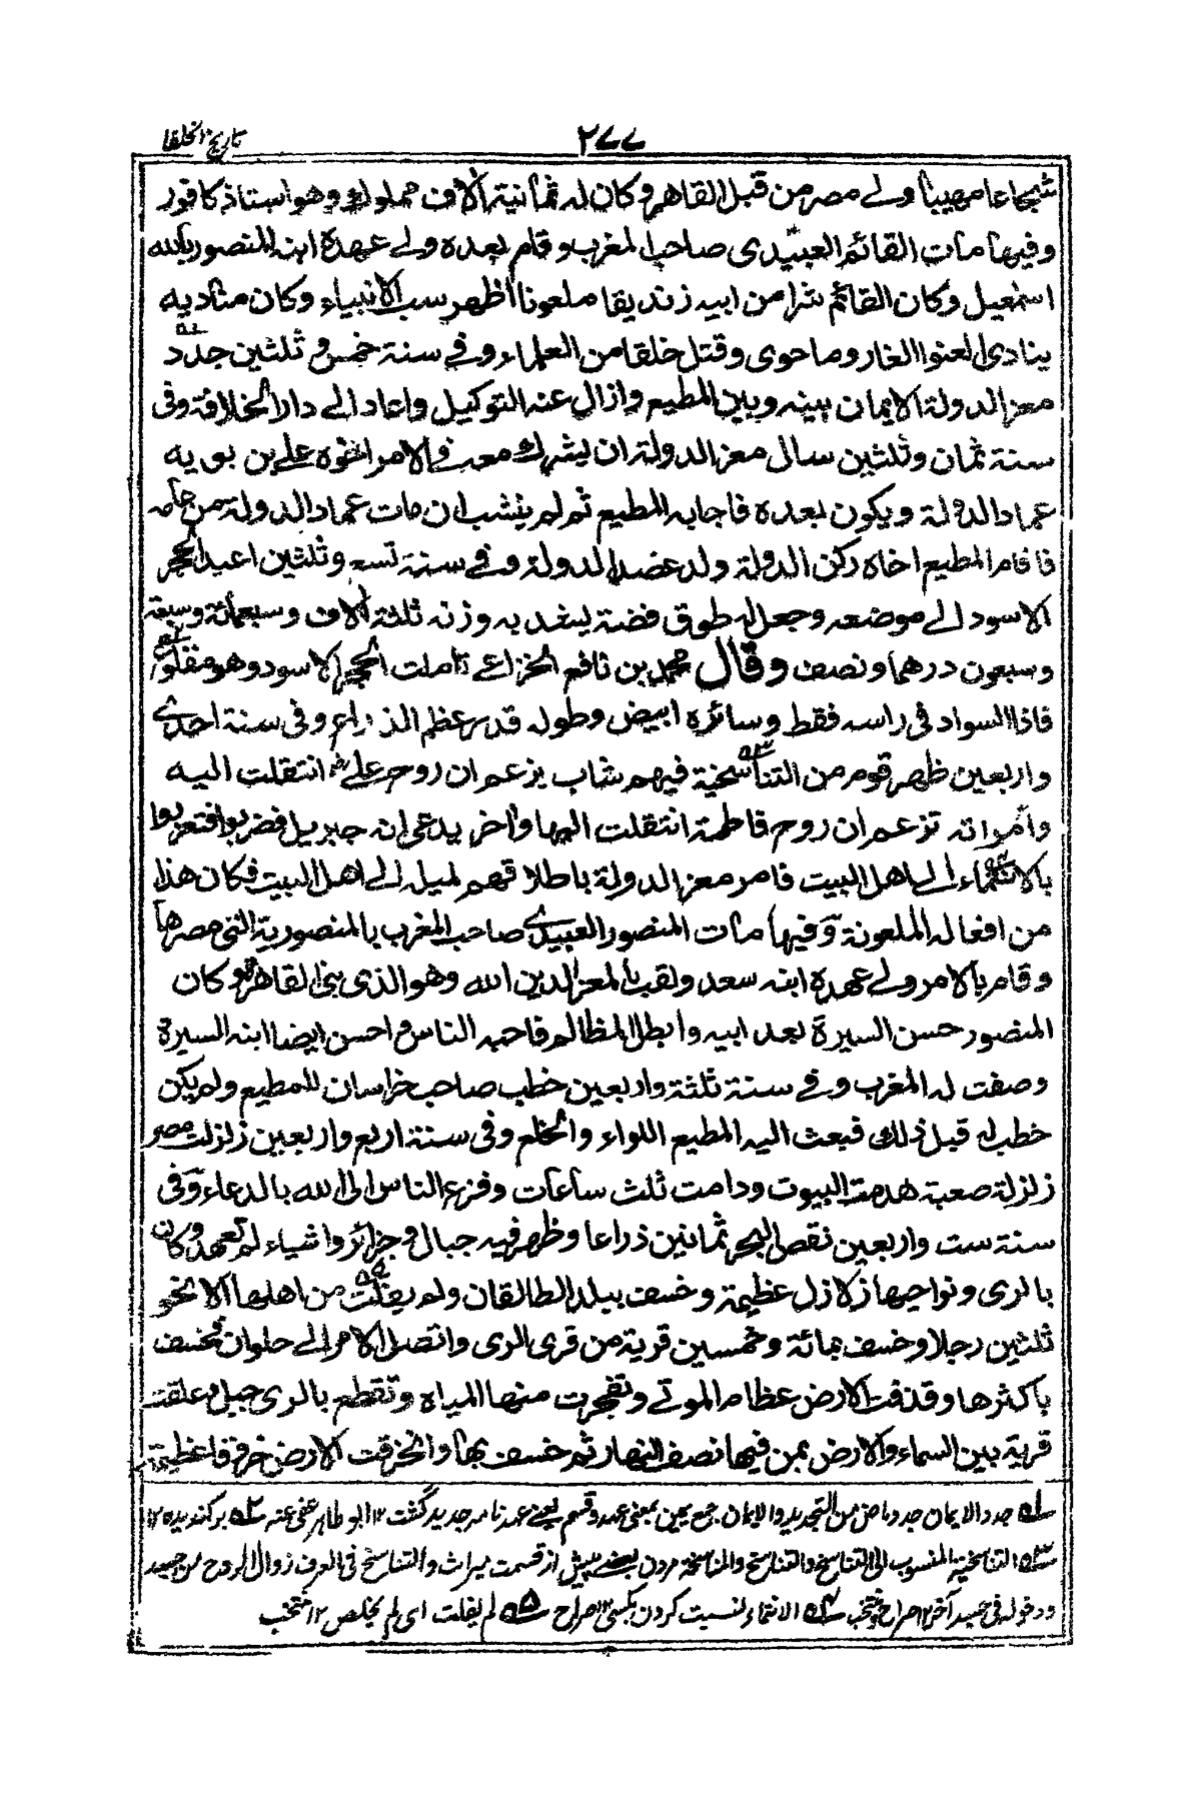 ٢٧٧
تاريخ الخلفا
شجاعا مهيبا ولے مصر من قبل القاهر وكان له ثمانية الاف مملوك وهو استاذ كافور
وفيها مات القائم العبيدى صاحب المغرب وقام بعده ولے عهده ابنه المنصور بالله
اسمعيل وكان القائم شرا من ابيه زنديقا ملعونا اظهر سب الانبياء وكان مناديه
ينادى العنوا الغار وما حوى وقتل خلقا من العلماء وفے سنة خمس وثلثين جدد
معز الدولة الايمان بينه وبين المطيع وازال عنه التوكيل واعاد الے دار الخلافة وفى
سنة ثمان وثلثين سال معز الدولة ان يشرك معه فے الامر اخوه علے بن بويه
عماد الدولة ويكون بعده فاجابه المطيع ثم لم ينشب ان مات عماد الدولة من عامه
فاقام المطيع اخاه ركن الدولة ولد عضد الدولة وفے سنة تسع وثلثين اعيد الحجر
الاسود الے موضعه وجعل له طوق فضة يشد به وزنه ثلثة الاف وسبعمائة وسبعة
وسبعون درهما ونصف وقال محمد بن نافع الخزاعے تاملت الحجر الاسود وهو مقلوع
فاذا السواد فى راسه فقط وسائره ابيض وطوله قدر عظم الذراع وفى سنة احدے
واربعين ظهر قوم من التناسخية فيهم شاب يزعم ان روح علے انتقلت اليه
وامراته تزعم ان روح فاطمة انتقلت اليها واخر يدعى انه جبريل فضربوا فتعزبوا
بالانتماء الے اهل البيت فامر معز الدولة باطلاقهم لميله الے اهل البيت فكان هذا
من افعاله الملعونة وفيها مات المنصور العبيدے صاحب المغرب بالمنصورية التى مصرها
وقام بالامر ولے عهده ابنه سعد ولقب بالمعز لدين الله وهو الذى بنى القاهرة وكان
المنصور حسن السيرة بعد ابيه وابطل المظالم فاحبه الناس واحسن ايضا ابنه السيرة
وصفت له المغرب وفے سنة ثلثة واربعين خطب صاحب خراسان للمطيع ولم يكن
خطب له قبل ذلك فبعث اليه المطيع اللواء والخلع وفى سنة اربع واربعين زلزلت مصر
زلزلة صعبة هدمت البيوت ودامت ثلث ساعات وفزع الناس الى الله بالدعاء وفى
سنة ست واربعين نقص البحر ثمانين ذراعا وظهر فيه جبال وجزائر واشياء لم تعهد وكان
بالرى ونواحيها زلازل عظيمة وخسف ببلد الطالقان ولم يفلت من اهلها الا نحو
ثلثين رجلا وخسف بمائة وخمسين قرية من قرى الرى واتصل الامر الے حلوان فخسف
باكثرها وقذفت الارض عظام الموتے وتفجرت منها المياه وتقطع بالرى جبل وعلقت
قرية بين السماء والارض بمن فيها نصف النهار ثم خسف بها وانخرقت الارض خروقا عظيمة
سله جدد الايمان جدد ماض من التجديد والايمان جمع يمين بمعنى عهد وقسم يعنے عهد نامه جديد گشت ١٢ ابو طاهر عفى عنه سله بركنديده ١٢
سله التناسخية المنسوب الى التناسخ والتناسخ والمناسخة مردن بعضے پيش از قسمت ميراث والتناسخ فى العرف زوال الروح من جسد
ودخوله فى جسد آخر ١٢ صراح منتخب سله الانتماء نسبت كردن بكسى ١٢ صراح سله لم يفلت اى لم يخلص ١٢ منتخب